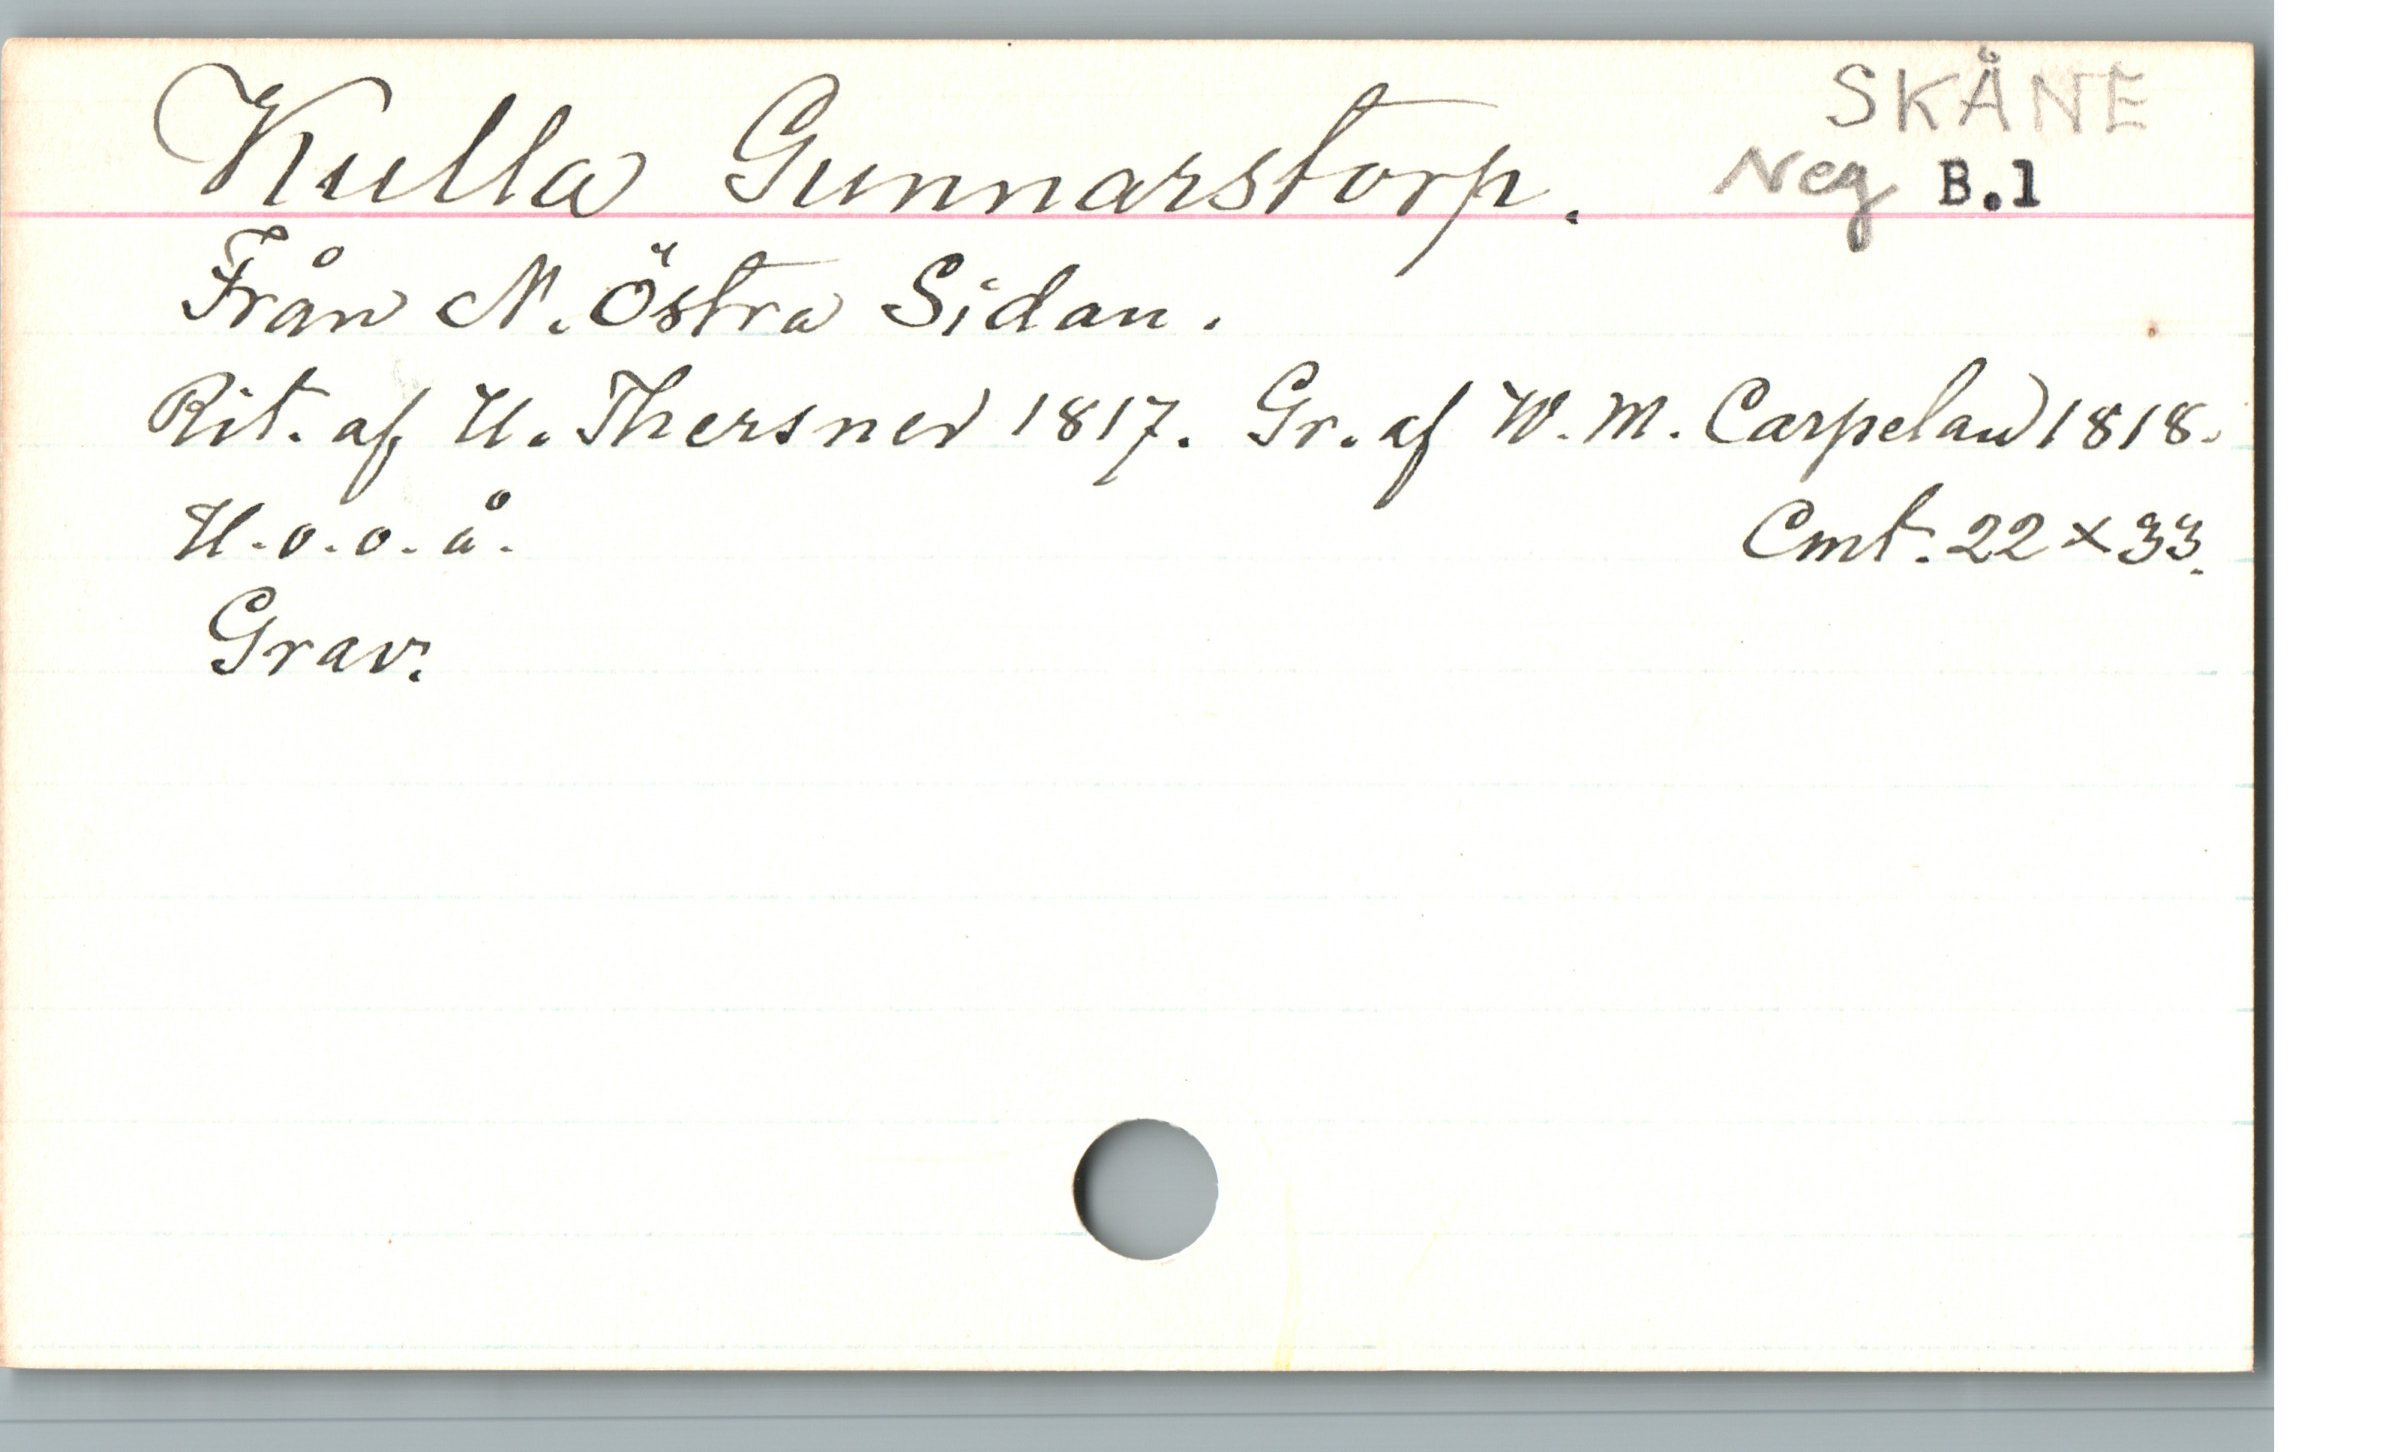 SKÅNE
Kulla Gunnarstorp. Neg B.1
Från N. Östra Sidan.
Rit. af U. Thersner 1817. Gr. af W. M. Carpelan 1818.
U. o. o. å. Cmt. 22 x 33.
Grav.